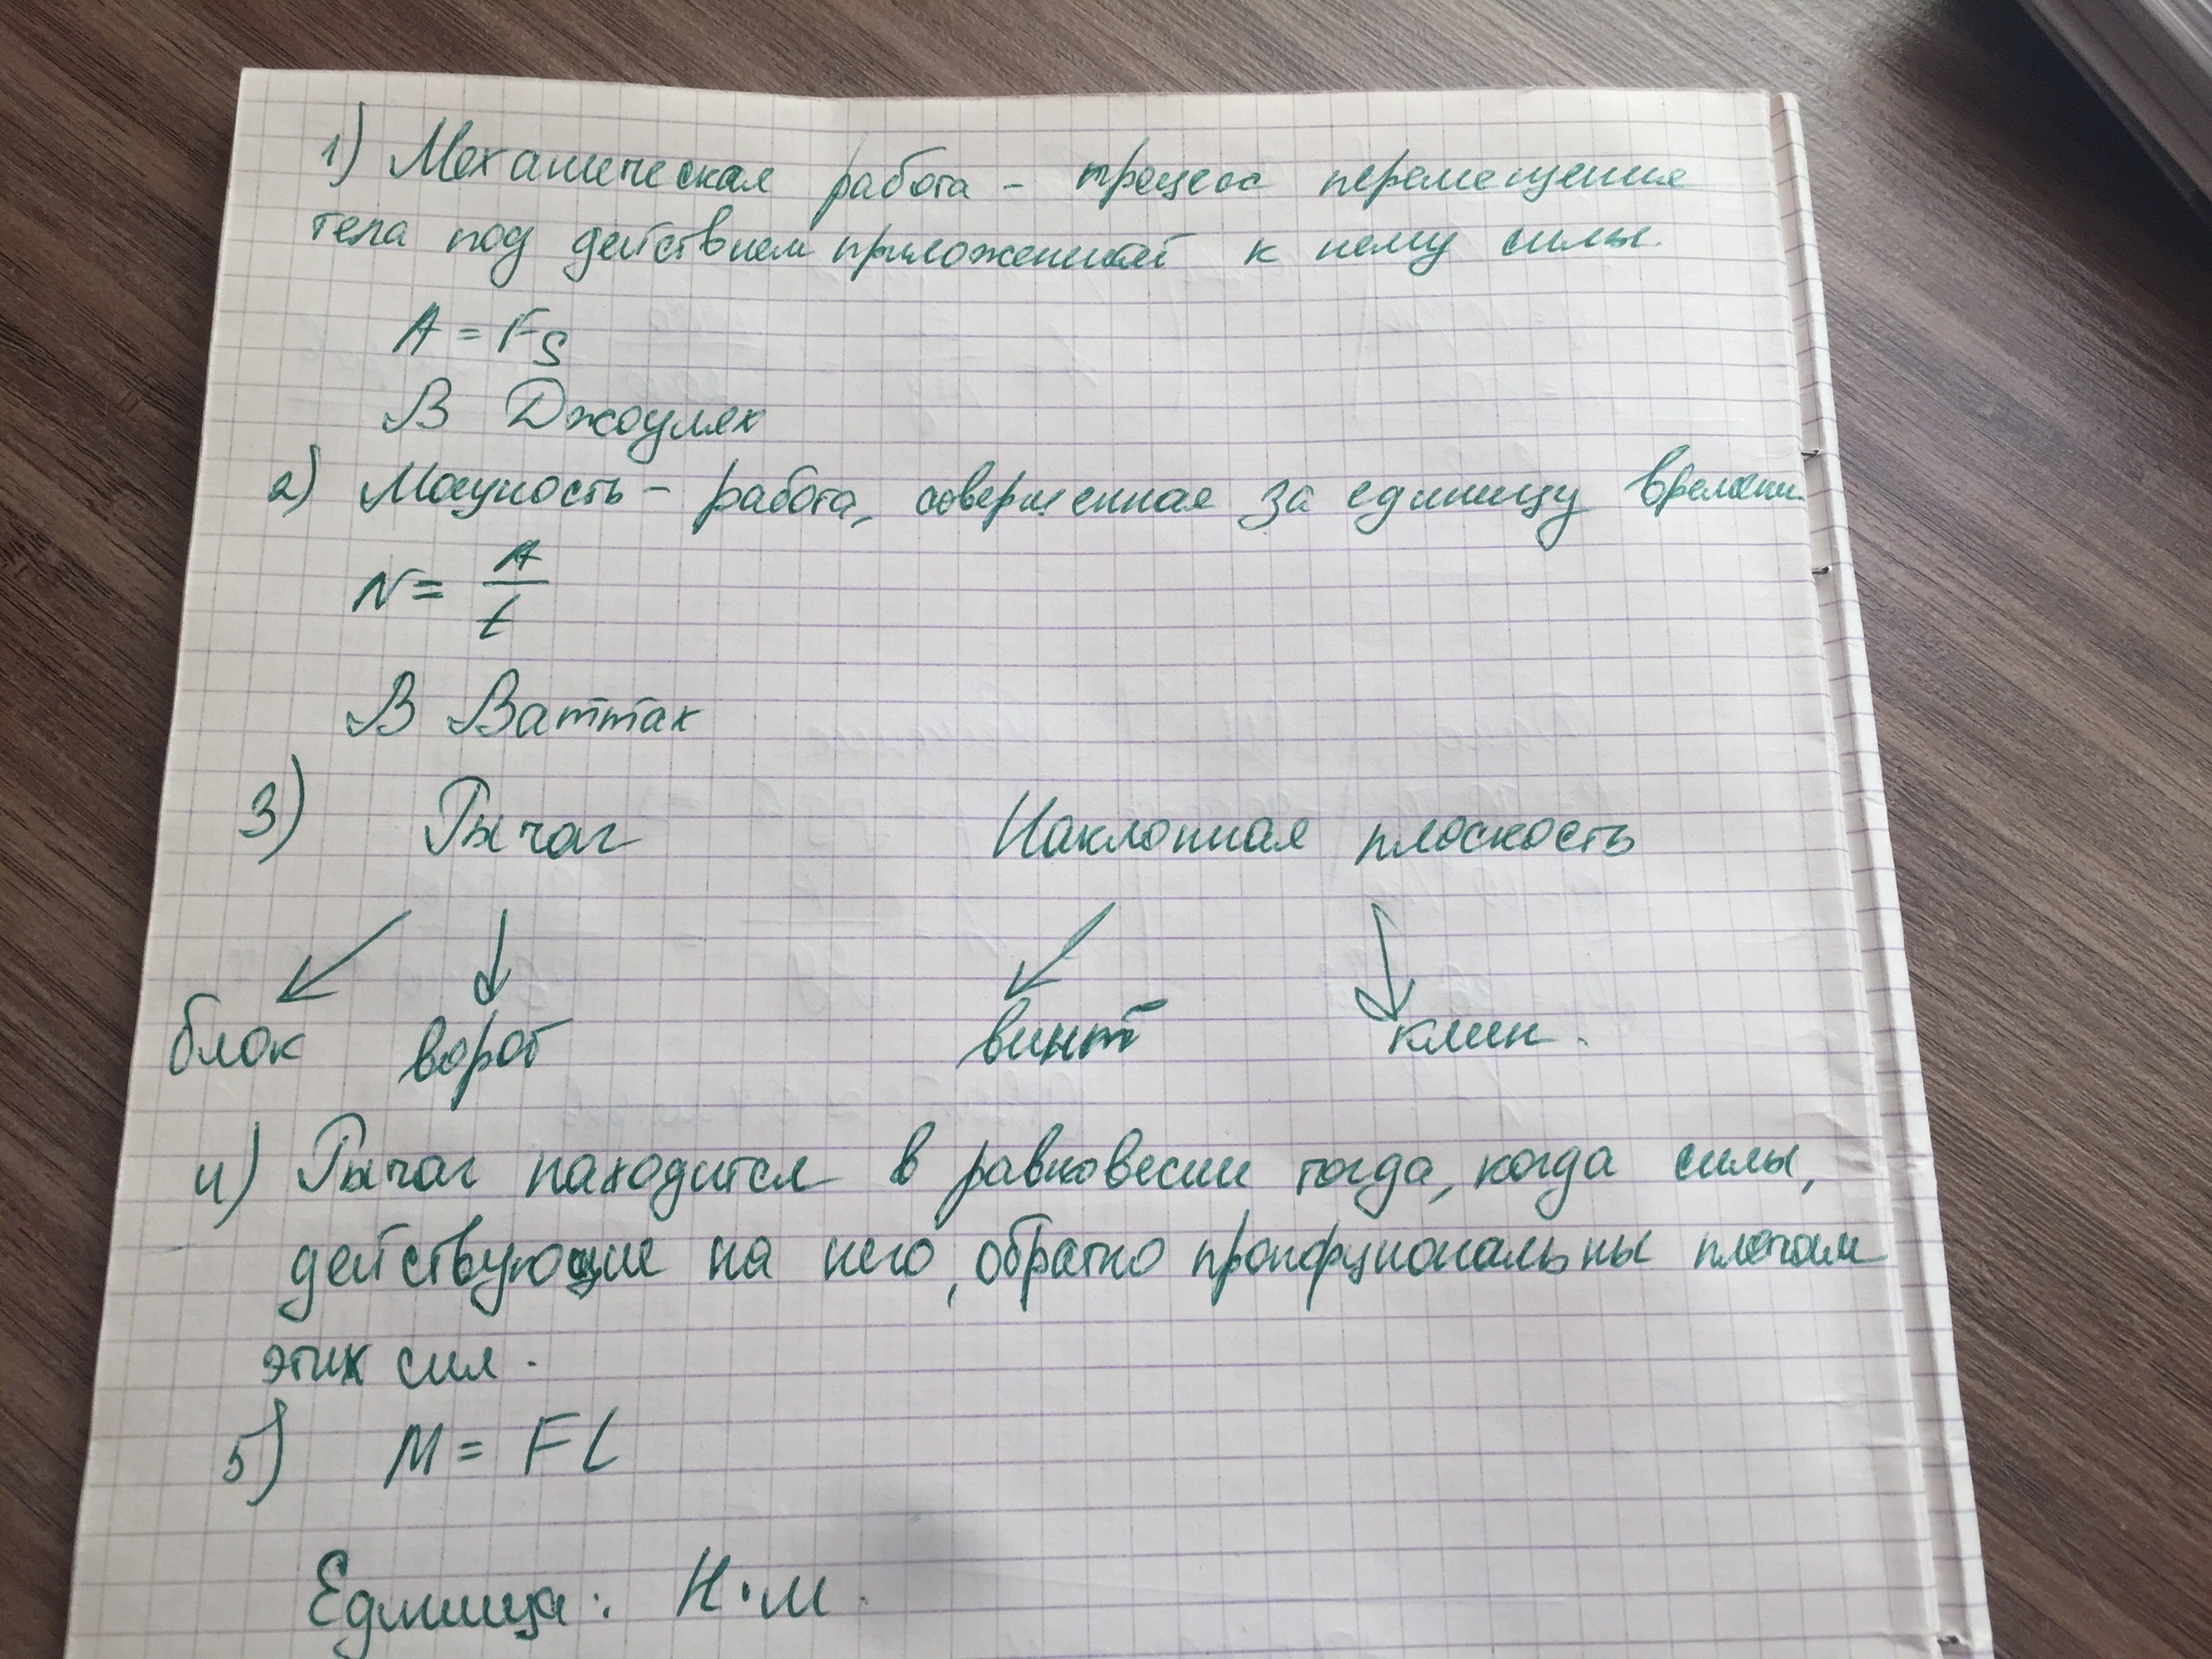 1) Механическая работа - процесс перемещения
тела под действием приложенной к нему силы.
A = Fs
В Джоулях
2) Мощность - работа, совершенная за единицу времени.
N = A/t
В Ваттах
3) Рычаг Наклонная плоскость
блок ворот винт клин.
4) Рычаг находится в равновесии тогда, когда силы,
действующие на него, обратно пропорциональны плечам
этих сил.
5) M = Fl
Единица: Н·м.